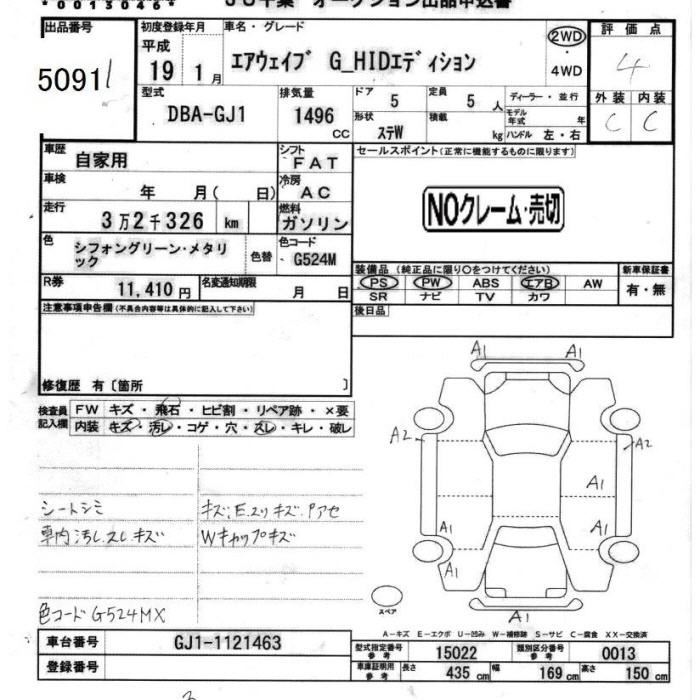 * 00130463 *
JU千葉 オークション出品申込書
出品番号 初度登録年月 車名・グレード 評価点
平成 19 1月 エアウェイブ G_HIDエディション 2WD・4WD 4
50911
型式 排気量 ドア 5 定員 5人 ディーラー・並行 外装 内装
DBA-GJ1 1496 CC 形状 ステW 積載 kg モデル年式 年 ハンドル 左・右 C C
車歴 自家用 シフト FAT セールスポイント(正常に機能するものに限ります)
車検 年 月( 日) 冷房 AC
走行 3万2千326 km 燃料 ガソリン NOクレーム・売切
色 シフォングリーン・メタリ
ック 色替 色コード G524M
装備品 (純正品に限り○をつけてください) 新車保証書
R券 11,410円 名変通知期限 月 日 PS PW ABS エアB AW 有・無
SR ナビ TV カワ
注意事項申告欄(不具合内容等は具体的に記入して下さい) 後日品
修復歴 有〔箇所 〕
検査員 FW キズ・飛石・ヒビ割・リペア跡・×要
記入欄 内装 キズ・汚レ・コゲ・穴・スレ・キレ・破レ
A1 A1
A2 A2
A1
A1 A1
A1
シートシミ キズ、Eスリキズ、Pアセ
車内汚し、スレ、キズ Wキャップキズ
スペア
A1
色コードG524MX
A-キズ E-エクボ U-凹み W-補修跡 S-サビ C-腐食 XX-交換済
車台番号 GJ1-1121463 型式指定番号 参考 15022 類別区分番号 参考 0013
登録番号 車庫証明用 参考 長さ 435 cm 幅 169 cm 高さ 150 cm